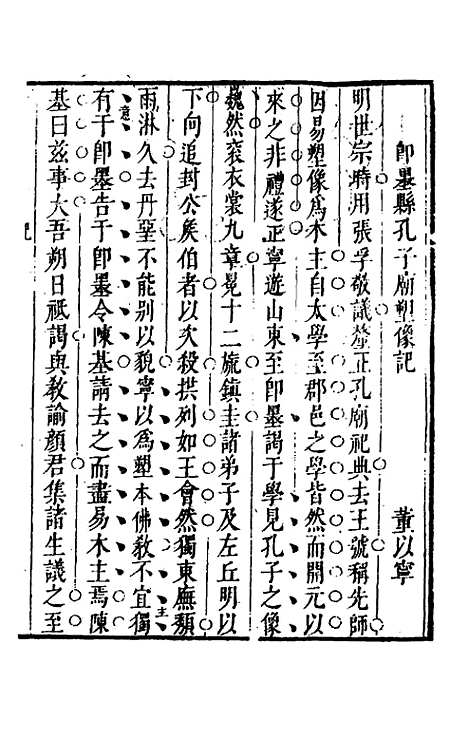 即墨縣孔子廟塑像記　董以寧
明世宗時用張孚敬議釐正孔廟祀典去王號稱先師
因易塑像爲木主自太學至郡邑之學皆然而開元以
來之非禮遂正寧遊山東至即墨謁于學見孔子之像
巍然袞衣裳九章冕十二旒鎮圭諸弟子及左丘明以
下向追封公矦伯者以次殺拱列如王會然獨東廡頽
雨淋久去丹堊不能别以貌寧以爲塑本佛敎不宜獨
有于即墨告于即墨令陳基請去之而盡易木主焉陳
基曰兹事大吾朔日祗謁與敎諭顔君集諸生議之至